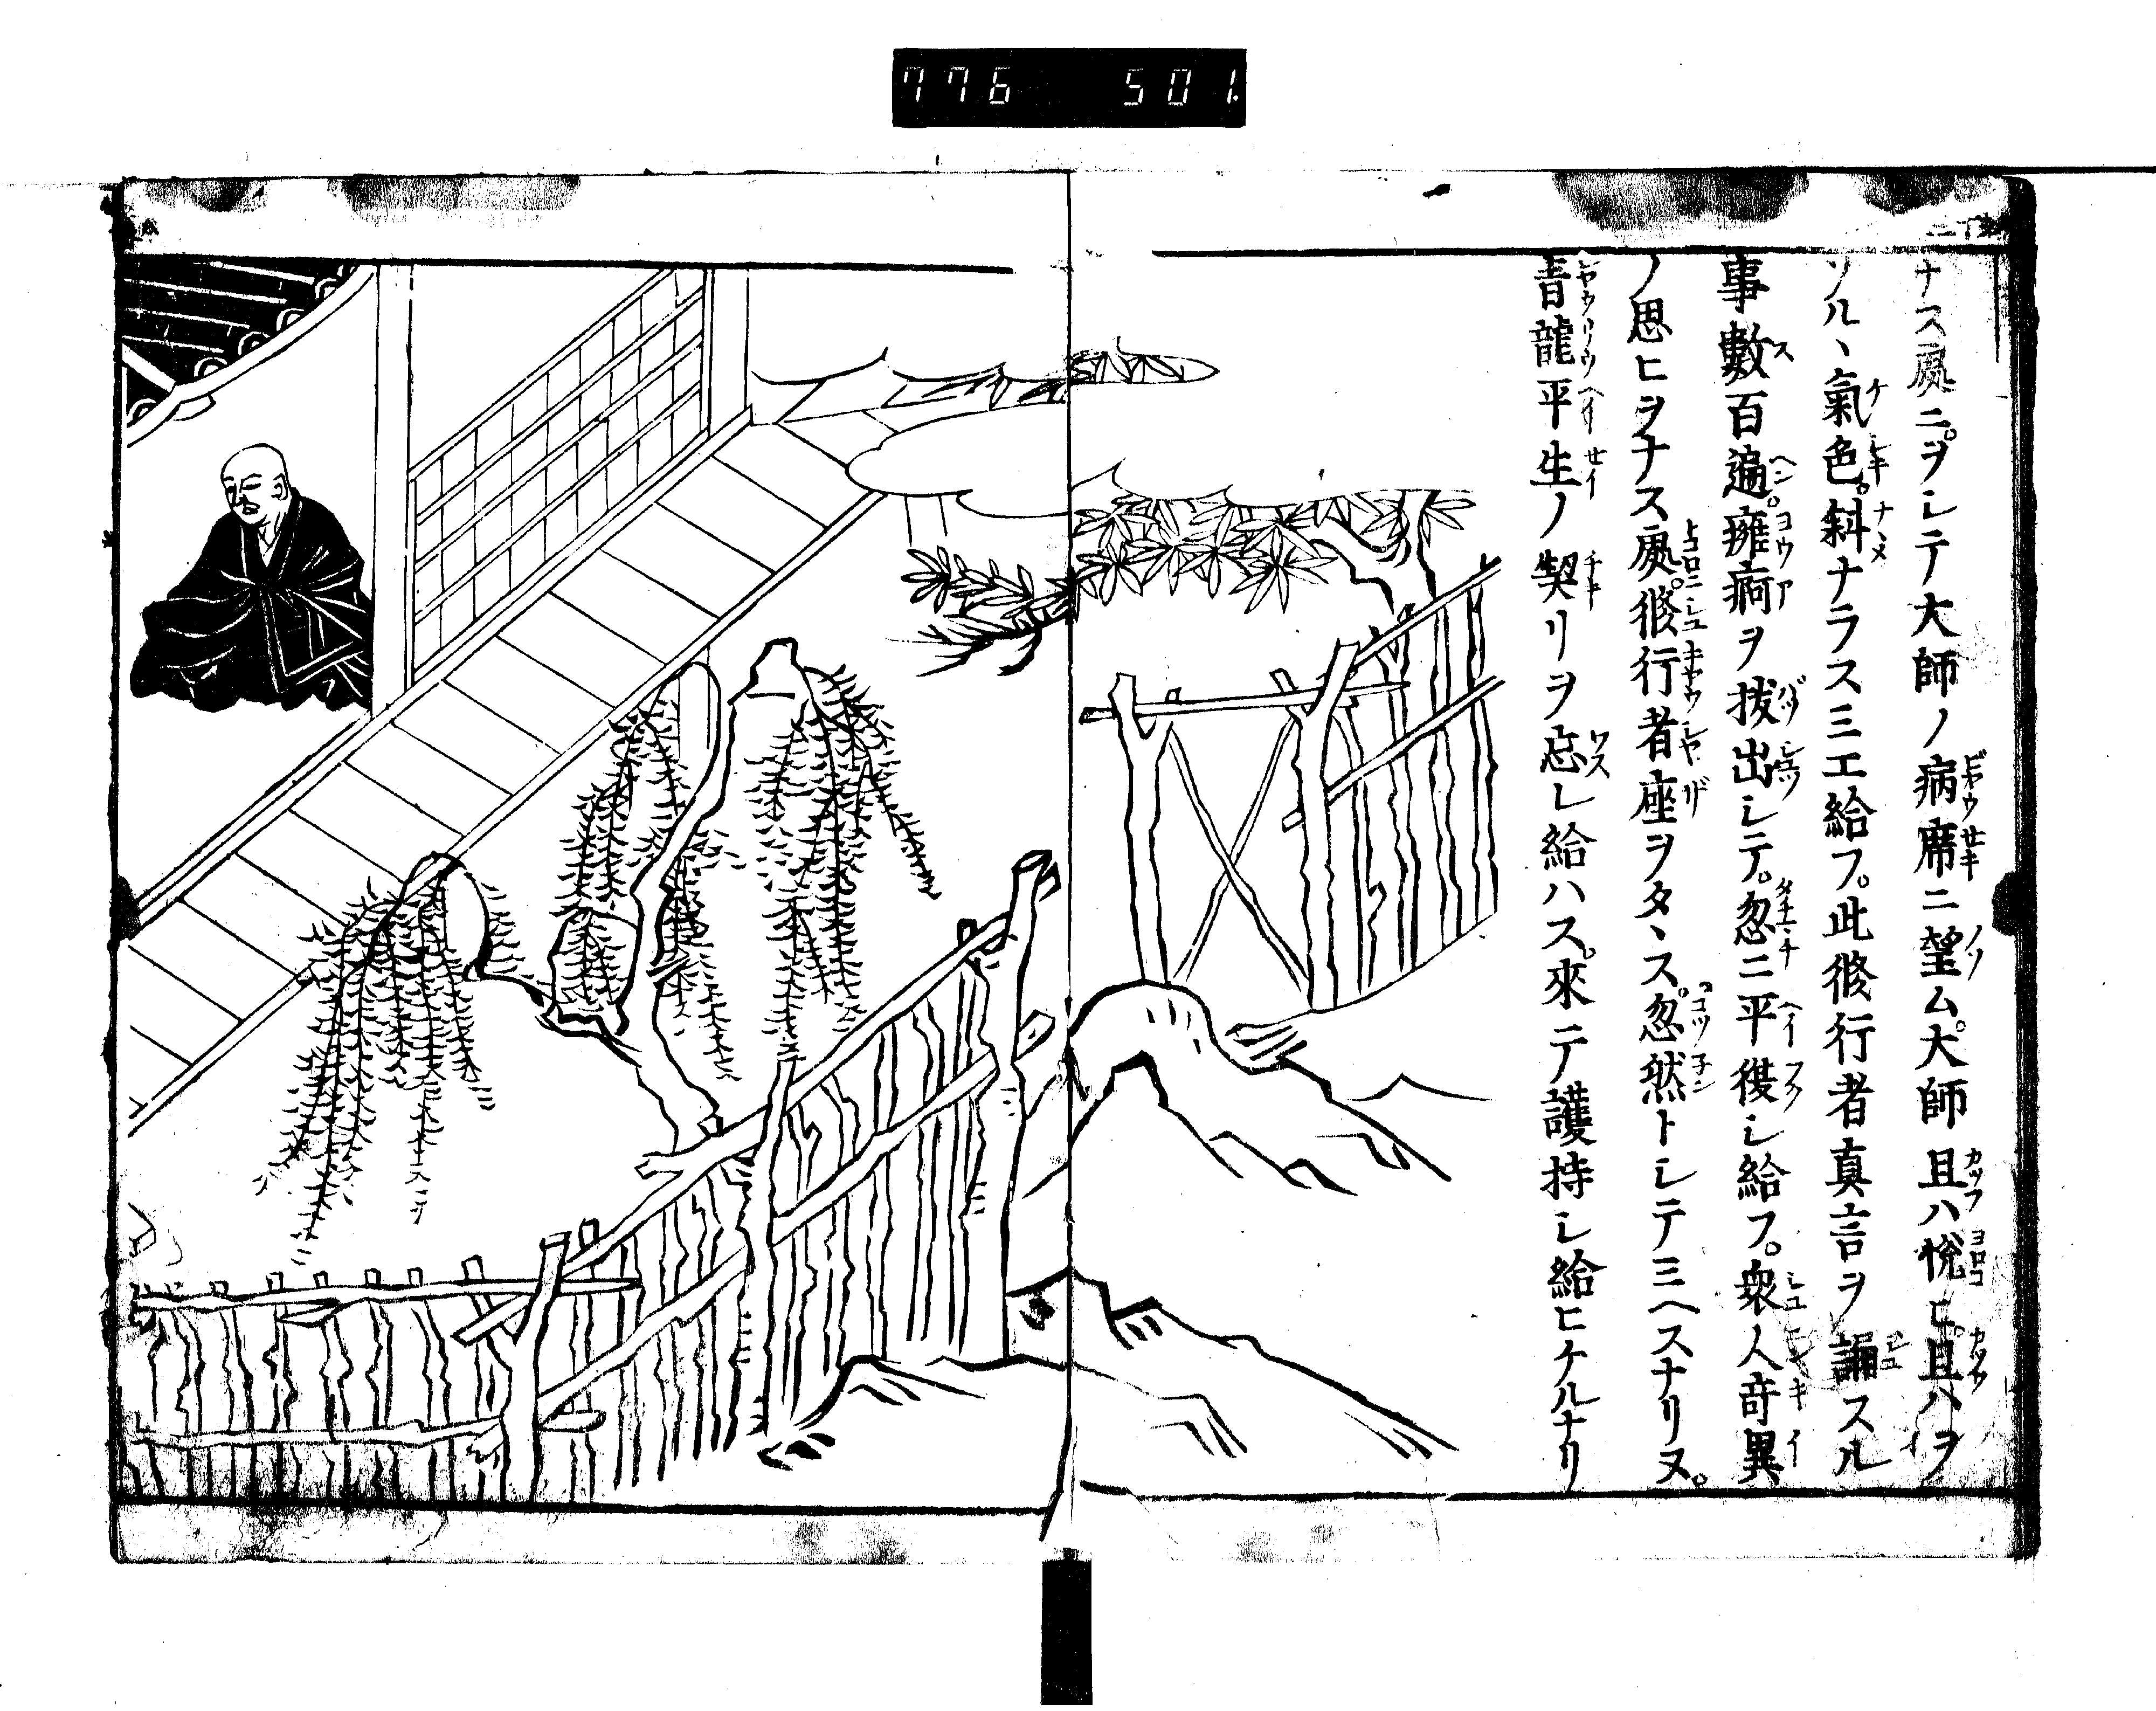 776 501.
ナス處ニ。ヲシテ大師ノ病席ニ望ム。大師且ハ悦ヒ。且ハヲ
ソル丶氣色。斜ナラスミエ給フ。此修行者真言ヲ誦スル
事數百遍。癰痾ヲ拔出シテ。忽ニ平復シ給フ。衆人奇異
ノ思ヒヲナス處。修行者座ヲタ丶ス。忽然トシテミヘスナリヌ。
青龍平生ノ契リヲ忘レ給ハス。來テ護持シ給ヒケルナリ